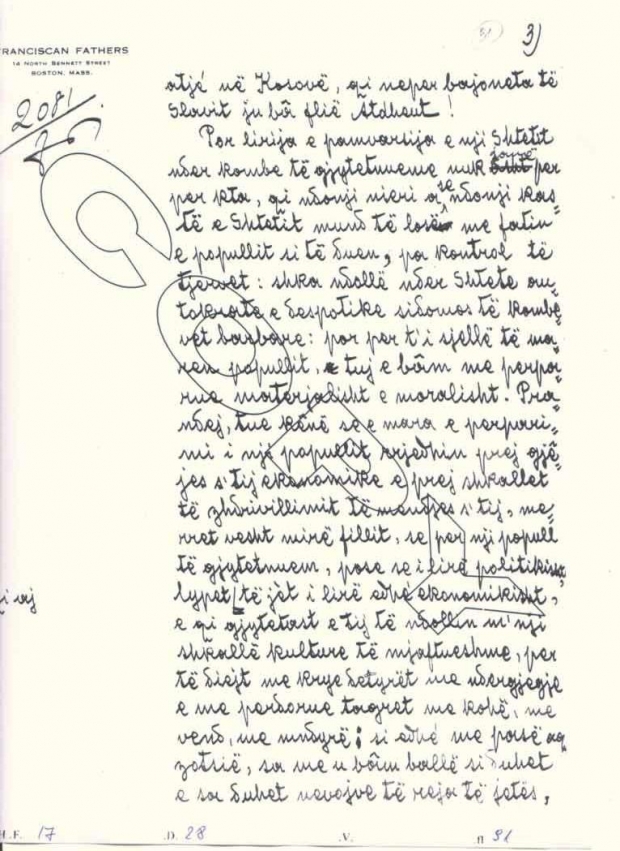 FRANCISCAN FATHERS
14 NORTH BENNETT STREET
BOSTON, MASS.
31 3)
2081
atjé në Kosovë, qi neper bajoneta të
Slavit ju bâ flië Atdheut!
Por lirija e pamvarsija e nji Shtetit
nder kombe të gjytetnueme nuk per
per kta, qi ndonji nieri a se ndonji kas=
të e Shtetit mund të losë me fatin
e popullit si të duen, pa kontrol të
tjervet: shka ndollë nder Shtete au=
tokrate e despotike sidomos të kombe=
vet barbare: por per t'i sjellë të ma=
ren popullit, tuj e bâm me perpa=
rue materjalisht e moralisht. Pra=
ndej, tue kênë se e mara e perpari=
mi i një popullit rrjedhin prej gjê=
jes s'tij ekonomike e prej shkallet
të zhdrivillimit të mendjes s'tij, me=
rret vesht mirë fillit, se per nji popull
të gjytetnuem, pose se i lirë politikisht,
lypet të jét i lirë edhé ekonomikisht,
e qi gjytetast e tij të ndollin m'nji
shkallë kulture të mjaftueshme, per
të diejt me krye detyrët me ndergjegje
e me perdorue tagret me kohë, me
vend, me mndyrë; si edhé me pasë aq
zotsië, sa me u bâm ballë si duhet
e sa duhet nevojve të reja të jetës,
COPY
H.F. 17 .D. 28 .V. .fl 31